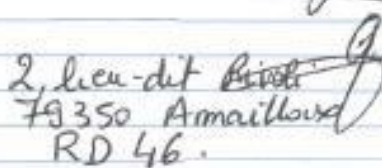 2, lieu-dit Rivoli
79350 Amailloux
RD 46.